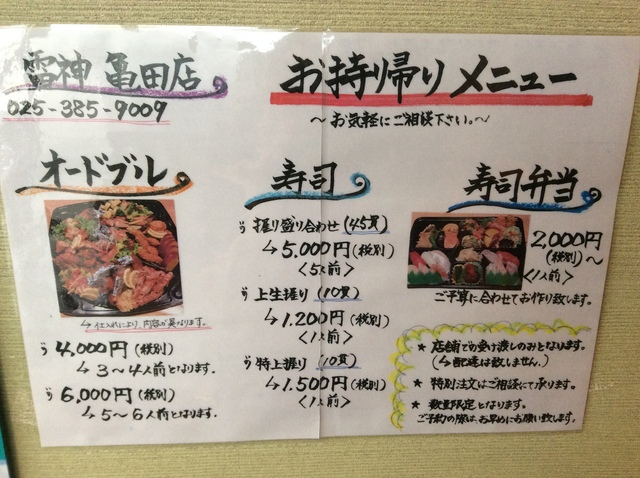 雷神 亀田店
025-385-9009
お持ち帰り メニュー
～お気軽にご相談下さい。～
オードブル
↳仕入れにより、内容が異なります。
4,000円(税別)
↳3～4人前となります。
6,000円(税別)
↳5～6人前となります。
寿司
握り盛り合わせ(45貫)
↳5,000円(税別)
<5人前>
上生握り(10貫)
↳1,200円(税別)
<1人前>
特上握り(10貫)
↳1,500円(税別)
<1人前>
寿司弁当
2,000円
(税別)～
<1人前>
ご予算に合わせてお作り致します。
★ 店舗での受け渡しのみとなります。
(↳配達は致しません。)
★ 特別注文はご相談にて承ります。
★ 数量限定となります。
ご予約の際は、お早めにお願い致します。